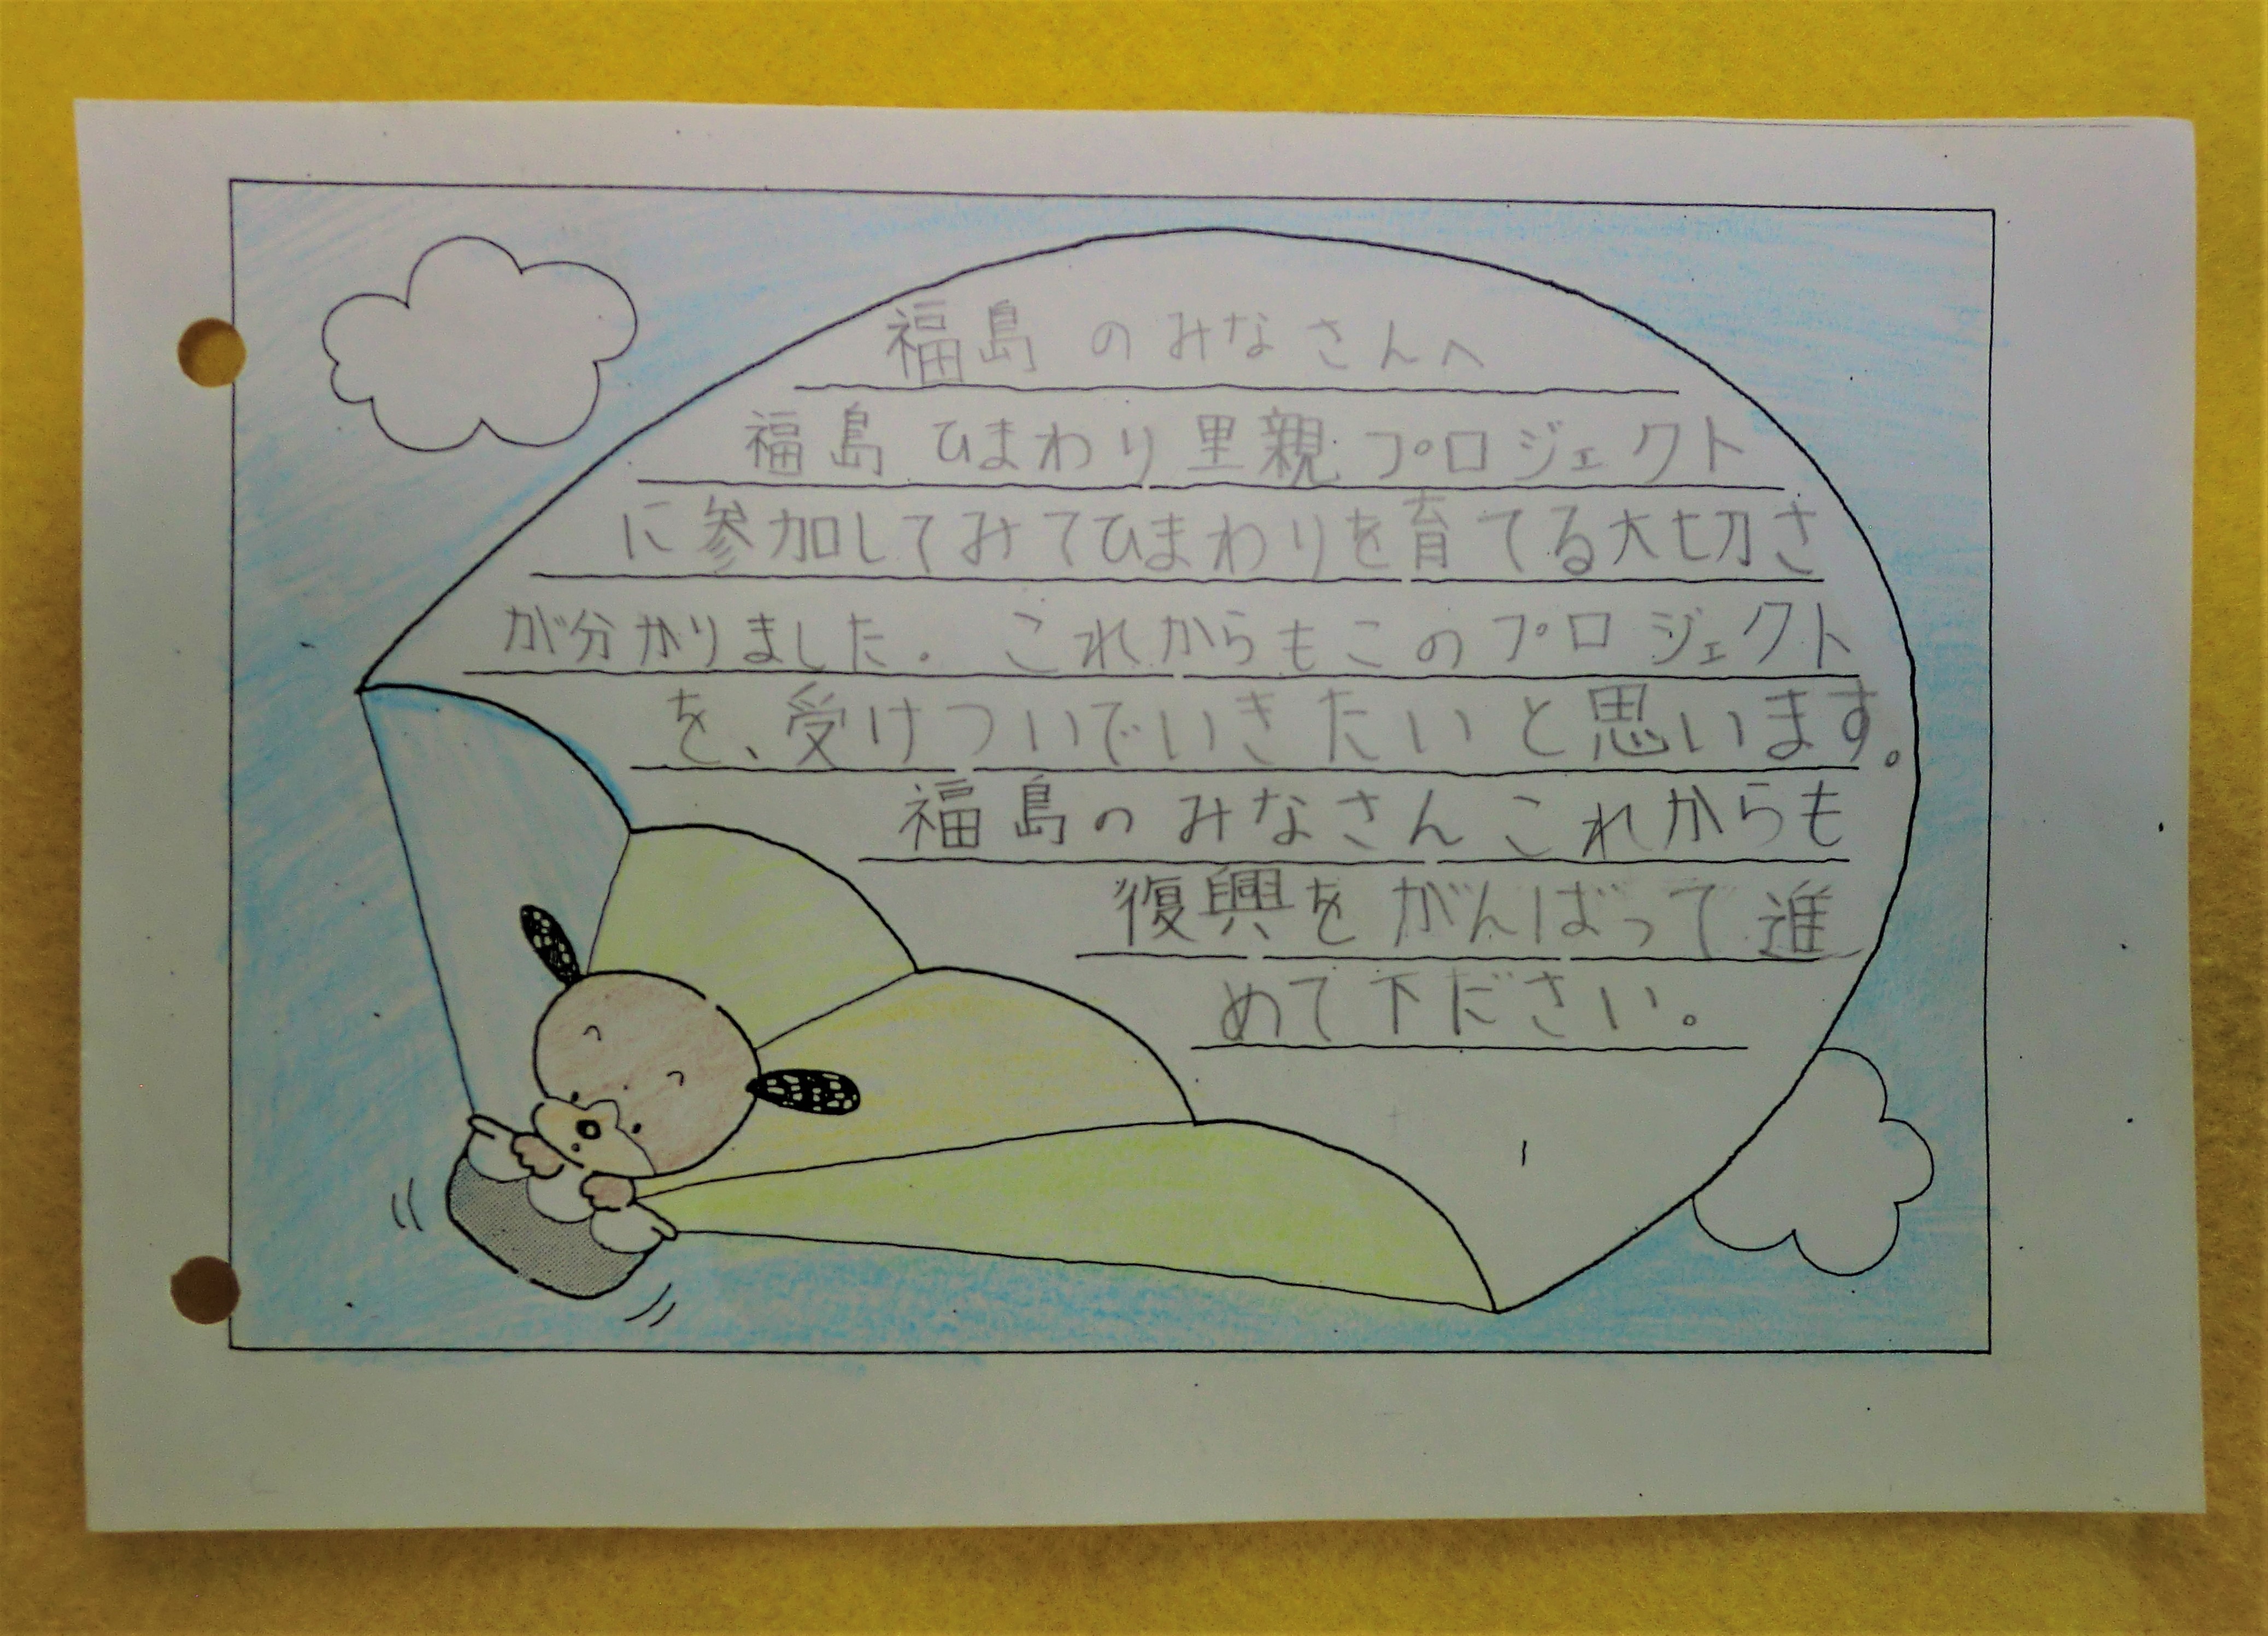 福島のみなさんへ
福島ひまわり里親プロジェクト
に参加してみてひまわりを育てる大切さ
が分かりました。これからもこのプロジェクト
を、受けついでいきたいと思います。
福島のみなさんこれからも
復興をがんばって進
めて下ださい。